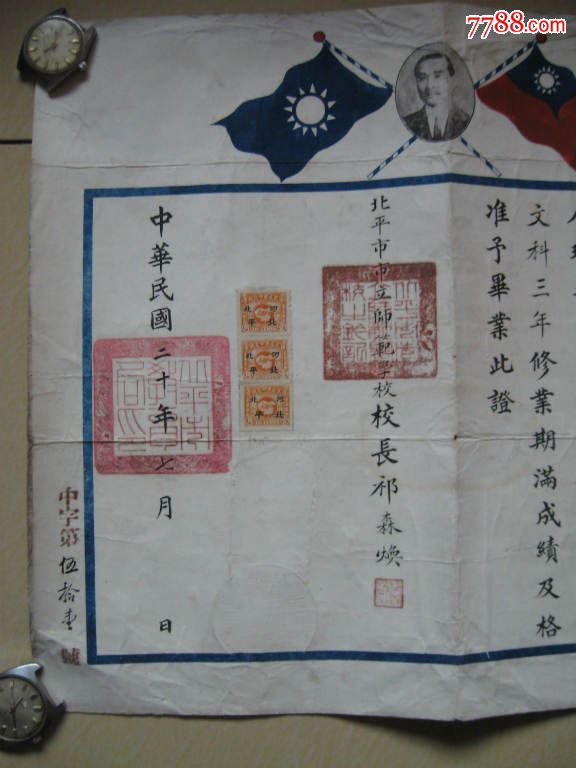 7788.com
文科三年修業期滿成績及格
准予畢業此證
北平市市立師範學校校長祁森煥
河北
北平
河北
北平
河北
北平
中華民國二十年七月 日
中字第伍拾壹號